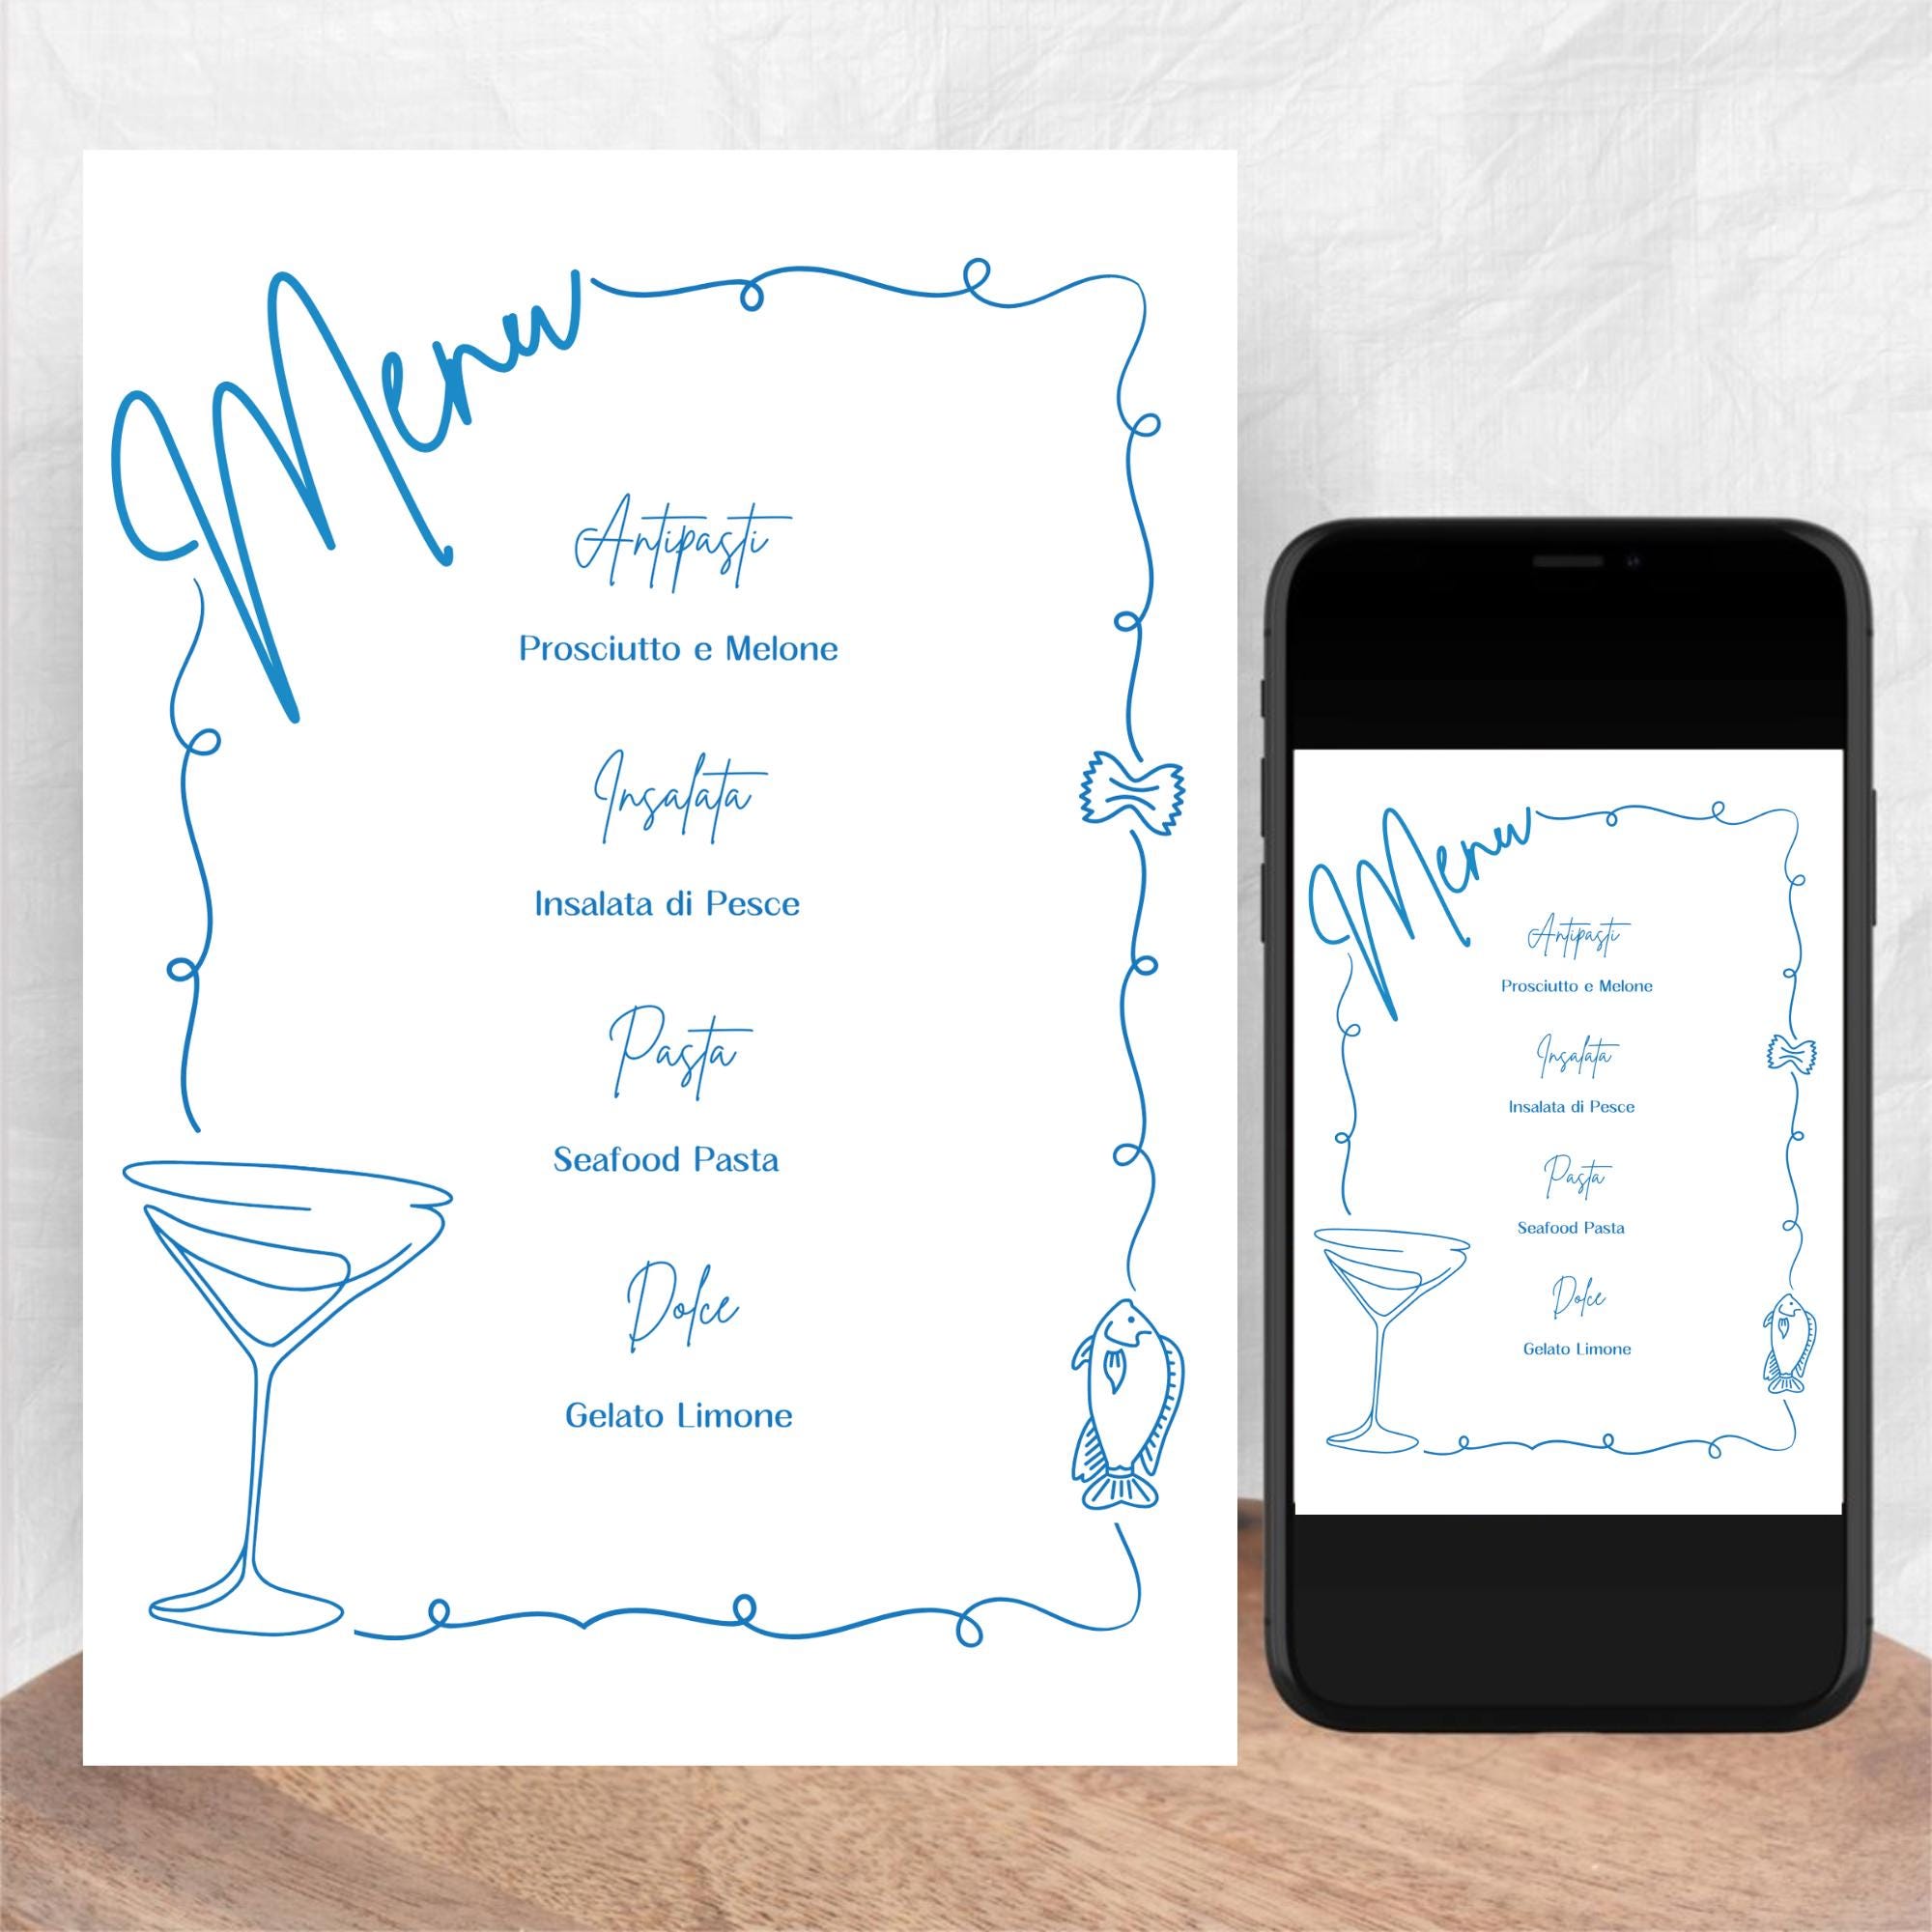 Menu
Antipasti
Prosciutto e Melone
Insalata
Insalata di Pesce
Pasta
Seafood Pasta
Dolce
Gelato Limone
Menu
Antipasti
Prosciutto e Melone
Insalata
Insalata di Pesce
Pasta
Seafood Pasta
Dolce
Gelato Limone